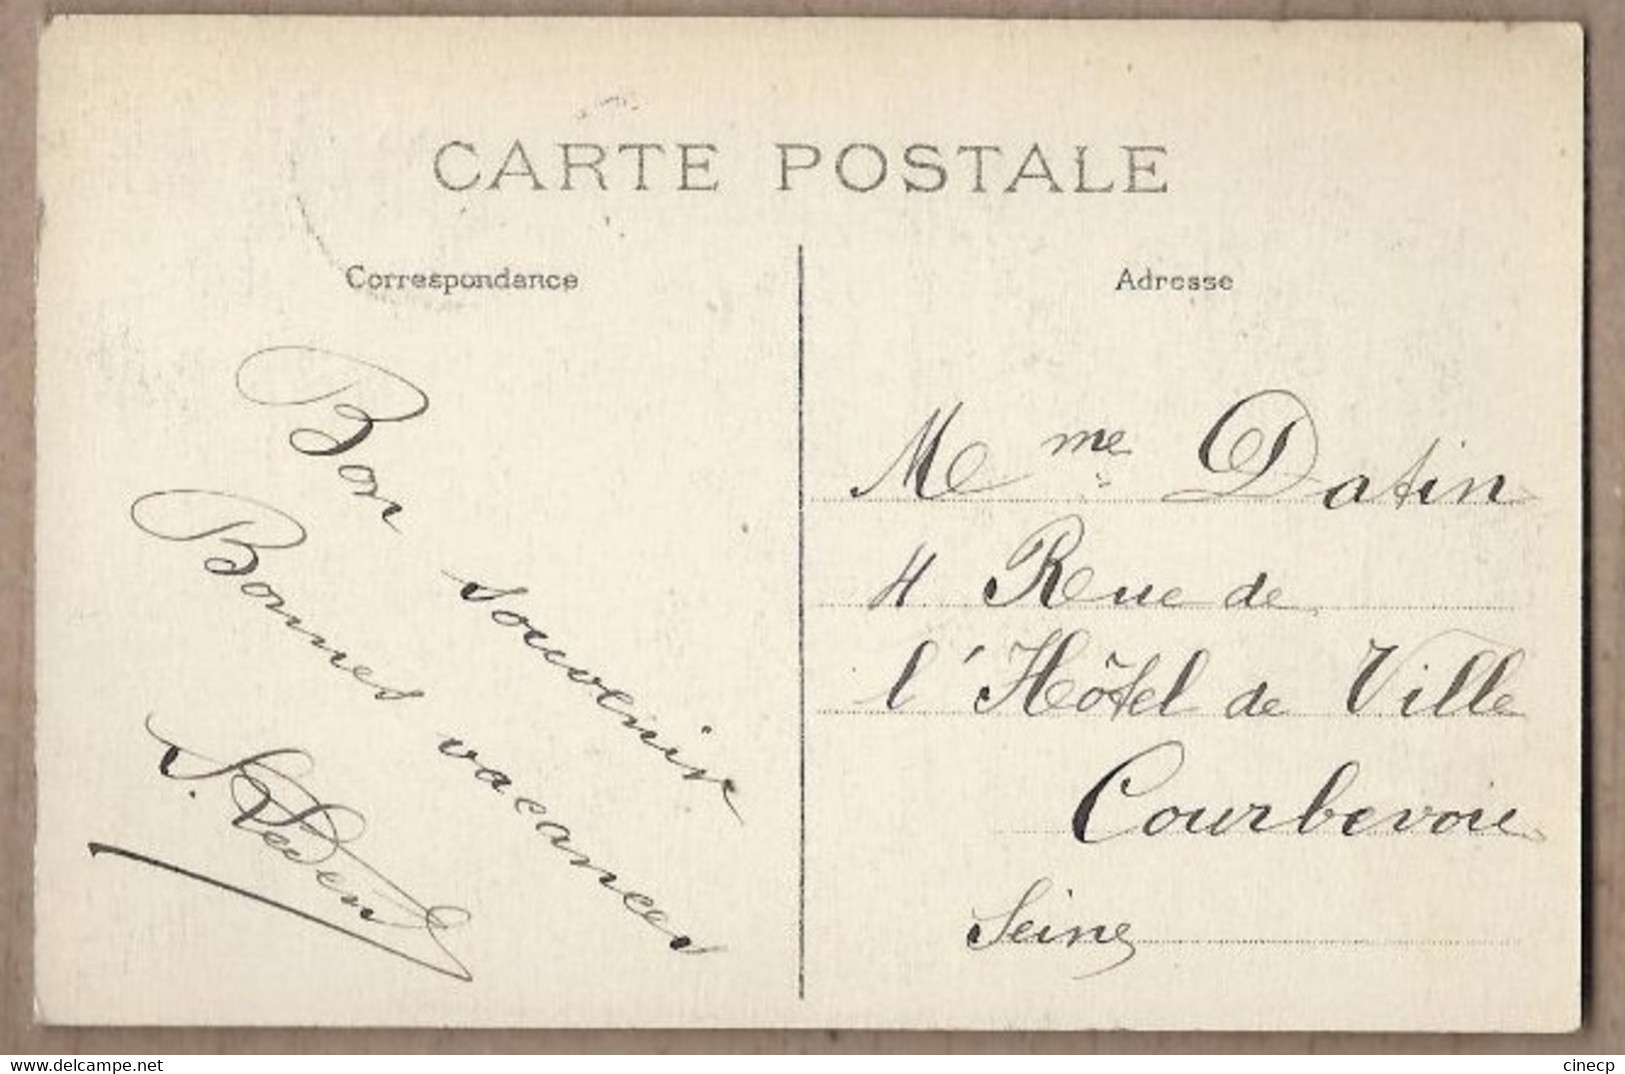 CARTE POSTALE
Correspondance
Adresse
Bon souvenir
Bonnes vacances
Mme Datin
4 Rue de
l'Hôtel de Ville
Courbevoie
Seine
cinecp